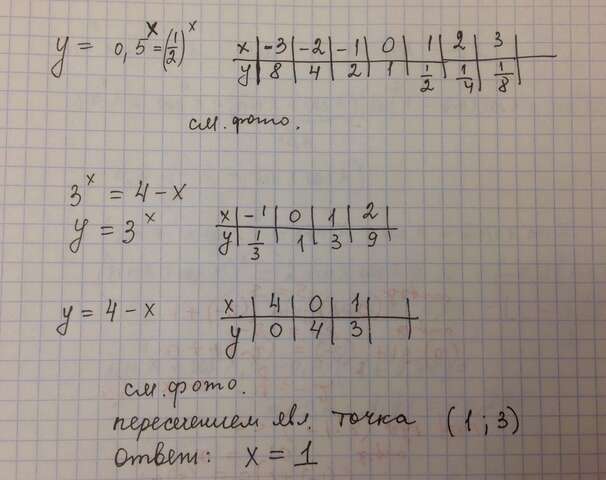 y = 0,5^x = (1/2)^x
x | -3 | -2 | -1 | 0 | 1 | 2 | 3 |
y | 8 | 4 | 2 | 1 | 1/2 | 1/4 | 1/8 |
см. фото.
3^x = 4 - x
y = 3^x
x | -1 | 0 | 1 | 2 |
y | 1/3 | 1 | 3 | 9 |
y = 4 - x
x | 4 | 0 | 1 | |
y | 0 | 4 | 3 | |
см. фото.
пересечением явл. точка (1; 3)
Ответ: x = 1